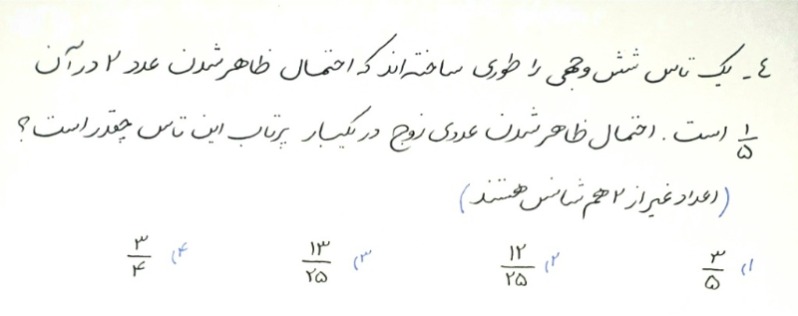 ٤- یک تاس شش وجهی را طوری ساخته‌اند که احتمال ظاهر شدن عدد ۲ در آن
۱/۵ است. احتمال ظاهر شدن عددی زوج در یکبار پرتاب این تاس چقدر است؟
(اعداد غیر از ۲ هم شانس هستند)
۱) ۳/۵ ۲) ۱۲/۲۵ ۳) ۱۳/۲۵ ۴) ۳/۴